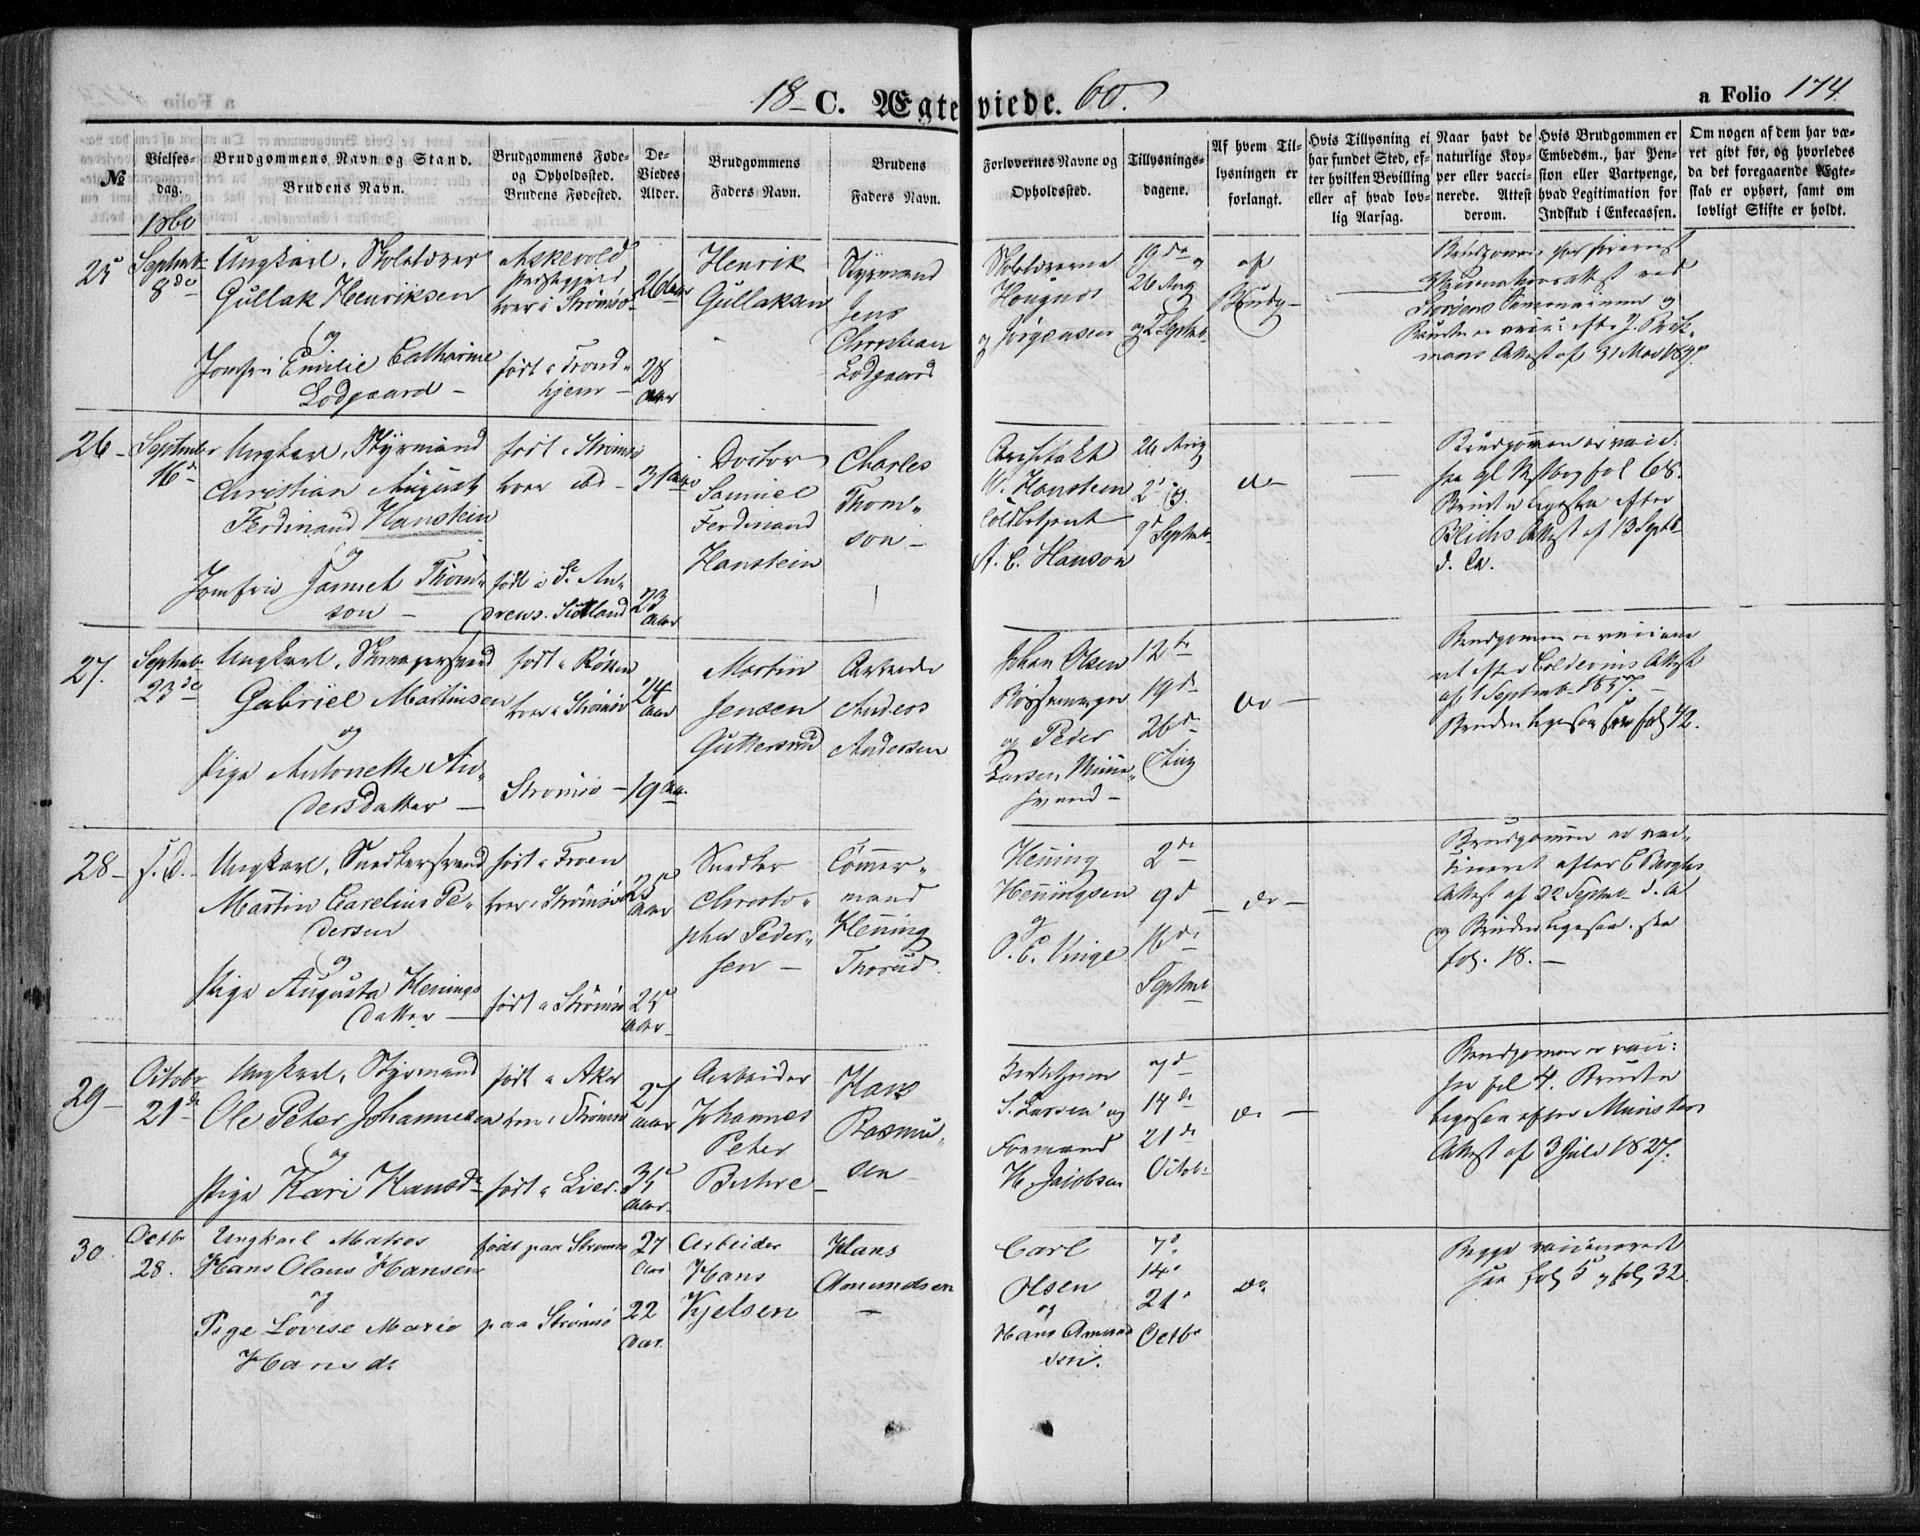 18 C. Ægteviede. 60.
a Folio 174.
№
Vielses-dag.
Brudgommens Navn og Stand.
Brudens Navn.
Brudgommens Føde- og Opholdsted.
Brudens Fødested.
De Viedes Alder.
Brudgommens Faders Navn.
Brudens Faders Navn.
Forlovernes Navne og Opholdsted.
Tillysnings-dagene.
Af hvem Tillysningen er forlangt.
Hvis Tillysning ei har fundet Sted, efter hvilken Bevilling eller af hvad lovlig Aarsag.
Naar havt de naturlige Kopper eller vaccinerede. Attest derom.
Hvis Brudgommen er Embedsm., har Pension eller Vartpenge, hvad Legitimation for Indskud i Enkecassen.
Om nogen af dem har været givt før, og hvorledes da det foregaaende Ægteskab er ophørt, samt om lovligt Skifte er holdt.
1860
25
Septmb.
8de
Ungkarl, Skolelærer
Gullak Henriksen
og
Jomfru Emilie Catharine
Lodgaard
Askevold
Præstegjeld
boer i Strømsø
født i Trond-
hjem
26 aar
28
aar
Henrik
Gullaksen
Styrmand
Jens
Christian
Lodgaard
Skolelærerne
Hougnes
og Jørgensen
19de
26 Aug
og 2 Septmb.
af
Brudg
31 Mai
26
September
16d
Ungkarl, Styrmand
Christian August
Ferdinand Hanstein
og
Jomfru Samuel Thom-
son
født i Strømsø
boer ibd
født i St. An-
drews. Scotland
31 aar
23
aar
Doctor
Samuel
Ferdinand
Hanstein
Charles
Thom-
son
Architekt
W. Hanstein
Toldbetjent
A. C. Hanson
26 Aug
2
og
9d Septmb.
do
Brudgommen er vacc:
fol 68.
Bruden ligesaa efter
Blichs Attest af 13 Septb
d. A.
27.
Septmb.
23de
Ungkarl, Skomagersvend
Gabriel Martinsen
og
Pige Antonette An-
dersdatter
født i Røken
boer i Strømsø
Strømsø
24
aar
19 aar
Martin
Jensen
Guttersrud
Arbeider
Anders
Andersen
Johan Olsen
og Peder
Larsen
12te
19de
26de
Aug
do
Brudgommen er vaccine-
ret efter Attest
af 1 Septemb. 1837.
Bruden ligesaa see fol 42.
28
s. d.
Ungkarl, Snedkersvend
Martin Carelius Pe-
dersen
og
Pige Augusta Hennings
datter
født i Troen
boer i Strømsø
født i Strømsø
25
aar
25
aar
Snedker
Christo-
pher Peder-
sen
Tømmer-
mand
Henning
Thorud.
Henning
Henningsen
og
O. C. Vinge
2de
9d
16de
Septmb
do
Brudgommen er vac-
cineret efter C Berghs
Attest af 22 Septemb d. A
og Bruden ligesaa. see
fol. 18.
29
Octobr
21de
Ungkarl, Styrmand
Ole Peter Johannesen
og
Pige Kari Hansdr
født i Aker
boer i Strømsø
født i Lier.
27
aar
35
aar
Arbeider
Johannes
Peter
Buhre
Hans
Rasmu-
sen
S. Larsen og
Formand
H. Jacobsen
7d
14de
21de
Octobr
do
Brudgommen er vacc:
see fol 4. Bruden
ligesaa efter Münsters
Attest af 3 Juli 1827.
30
Octbr
28.
Ungkarl Matros
Hans Olaus Hansen
og
Pige Lovise Marie
Hansdr
født paa Strømsø
paa Strømsø
27
Aar
22
Aar.
Arbeider
Hans
Kjelsen
Hans
Amundsen
Carl
Olsen
og
Hans Amund
sen.
7d
14d
21d
Octbr
do
Begge vaccinerede
see fol 5 og fol 32.